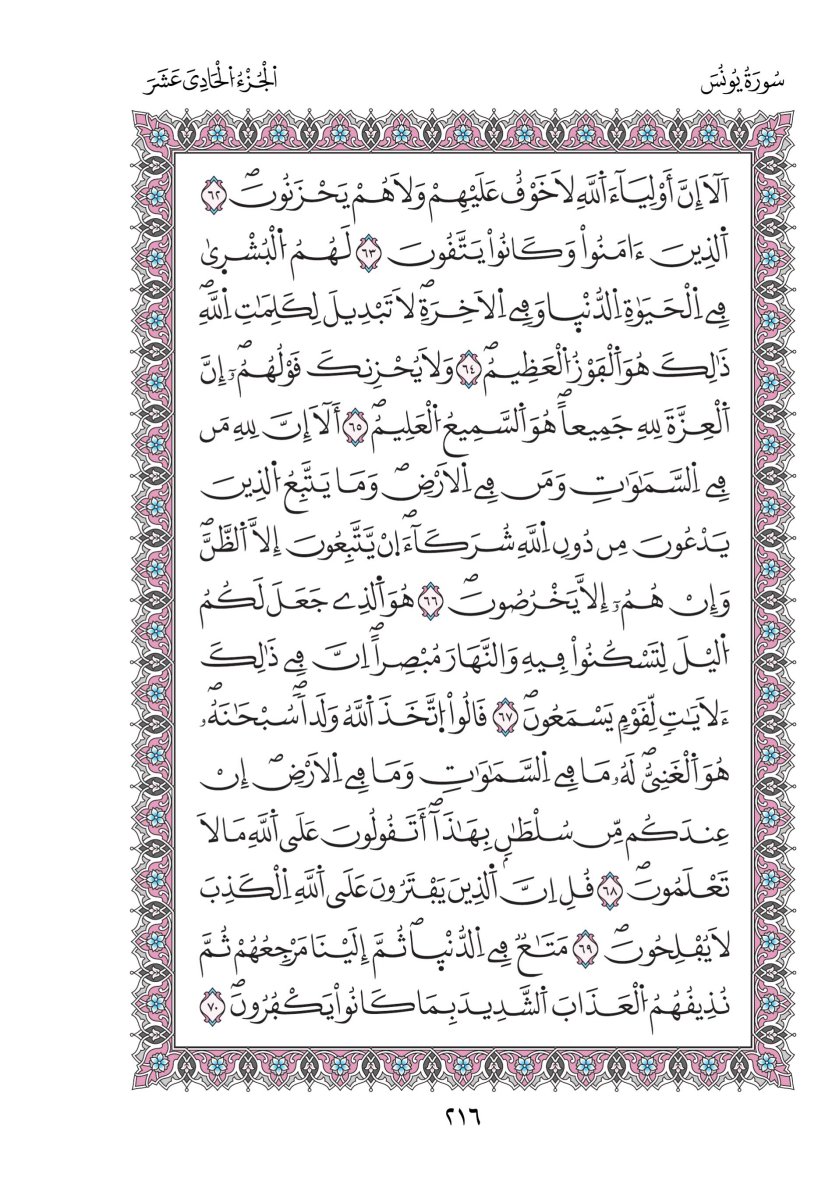 سُورَةُ يُونُسَ
اَلْجُزْءُ الْحَادِيَ عَشَرَ
أَلَآ إِنَّ أَوْلِيَآءَ اَللَّهِ لَا خَوْفٌ عَلَيْهِمْ وَلَا هُمْ يَحْزَنُونَۖ ٦٢
اَلذِينَ ءَامَنُواْ وَكَانُواْ يَتَّقُونَ ٦٣ لَهُمُ اُلْبُشْر۪يٰ
فِے اِلْحَيَوٰةِ اِلدُّنْي۪ا وَفِے اِلَاخِرَةِۖ لَا تَبْدِيلَ لِكَلِمَٰتِ اِللَّهِۖ
ذَٰلِكَ هُوَ اَلْفَوْزُ اُلْعَظِيمُۖ ٦٤ وَلَا يُحْزِنكَ قَوْلُهُمُۥٓۖ إِنَّ
اَلْعِزَّةَ لِلهِ جَمِيعاًۖ هُوَ اَلسَّمِيعُ اُلْعَلِيمُۖ ٦٥ أَلَآ إِنَّ لِلهِ مَن
فِے اِلسَّمَٰوَٰتِ وَمَن فِے اِلَارْضِۖ وَمَا يَتَّبِعُ اُلذِينَ
يَدْعُونَ مِن دُونِ اِللَّهِ شُرَكَآءَۖ اِنْ يَّتَّبِعُونَ إِلَّا اَلظَّنَّۖ
وَإِنْ هُمُۥٓ إِلَّا يَخْرُصُونَۖ ٦٦ هُوَ اَلذِے جَعَلَ لَكُمُ
اُليْلَ لِتَسْكُنُواْ فِيهِ وَالنَّهَارَ مُبْصِراًۖ اِنَّ فِے ذَٰلِكَ
ءَلَايَٰتٖ لِّقَوْمٖ يَسْمَعُونَۖ ٦٧ قَالُواْ اُتَّخَذَ اَللَّهُ وَلَداٗۖ سُبْحَٰنَهُۥۖ
هُوَ اَلْغَنِيُّۖ لَهُۥ مَا فِے اِلسَّمَٰوَٰتِ وَمَا فِے اِلَارْضِۖ إِنْ
عِندَكُم مِّن سُلْطَٰنِۢ بِهَٰذَآۖ أَتَقُولُونَ عَلَي اَللَّهِ مَا لَا
تَعْلَمُونَۖ ٦٨ قُلِ اِنَّ اَلذِينَ يَفْتَرُونَ عَلَي اَللَّهِ اِلْكَذِبَ
لَا يُفْلِحُونَۖ ٦٩ مَتَٰعٞ فِے اِلدُّنْي۪اۖ ثُمَّ إِلَيْنَا مَرْجِعُهُمْ ثُمَّ
نُذِيقُهُمُ اُلْعَذَابَ اَلشَّدِيدَ بِمَا كَانُواْ يَكْفُرُونَۖ ٧٠
٢١٦